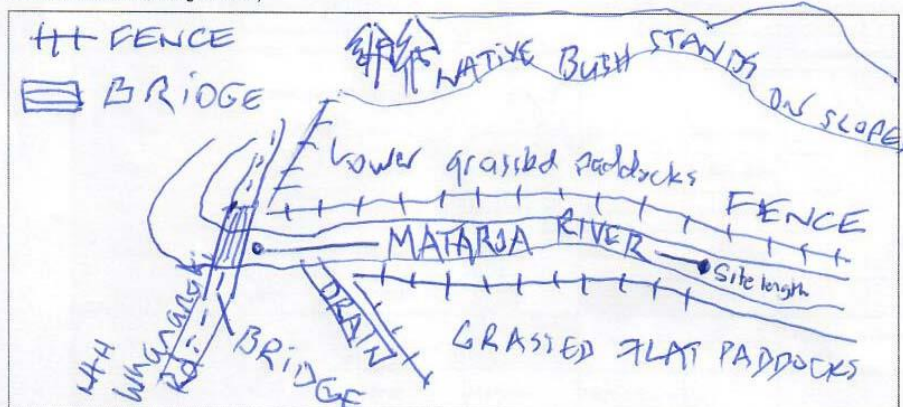 FENCE
BRIDGE
NATIVE BUSH STANDS ON SLOPE
Lower grassed paddocks
FENCE
MATAROA RIVER
Site length
DRAIN
BRIDGE
GRASSED FLAT PADDOCKS
Rd